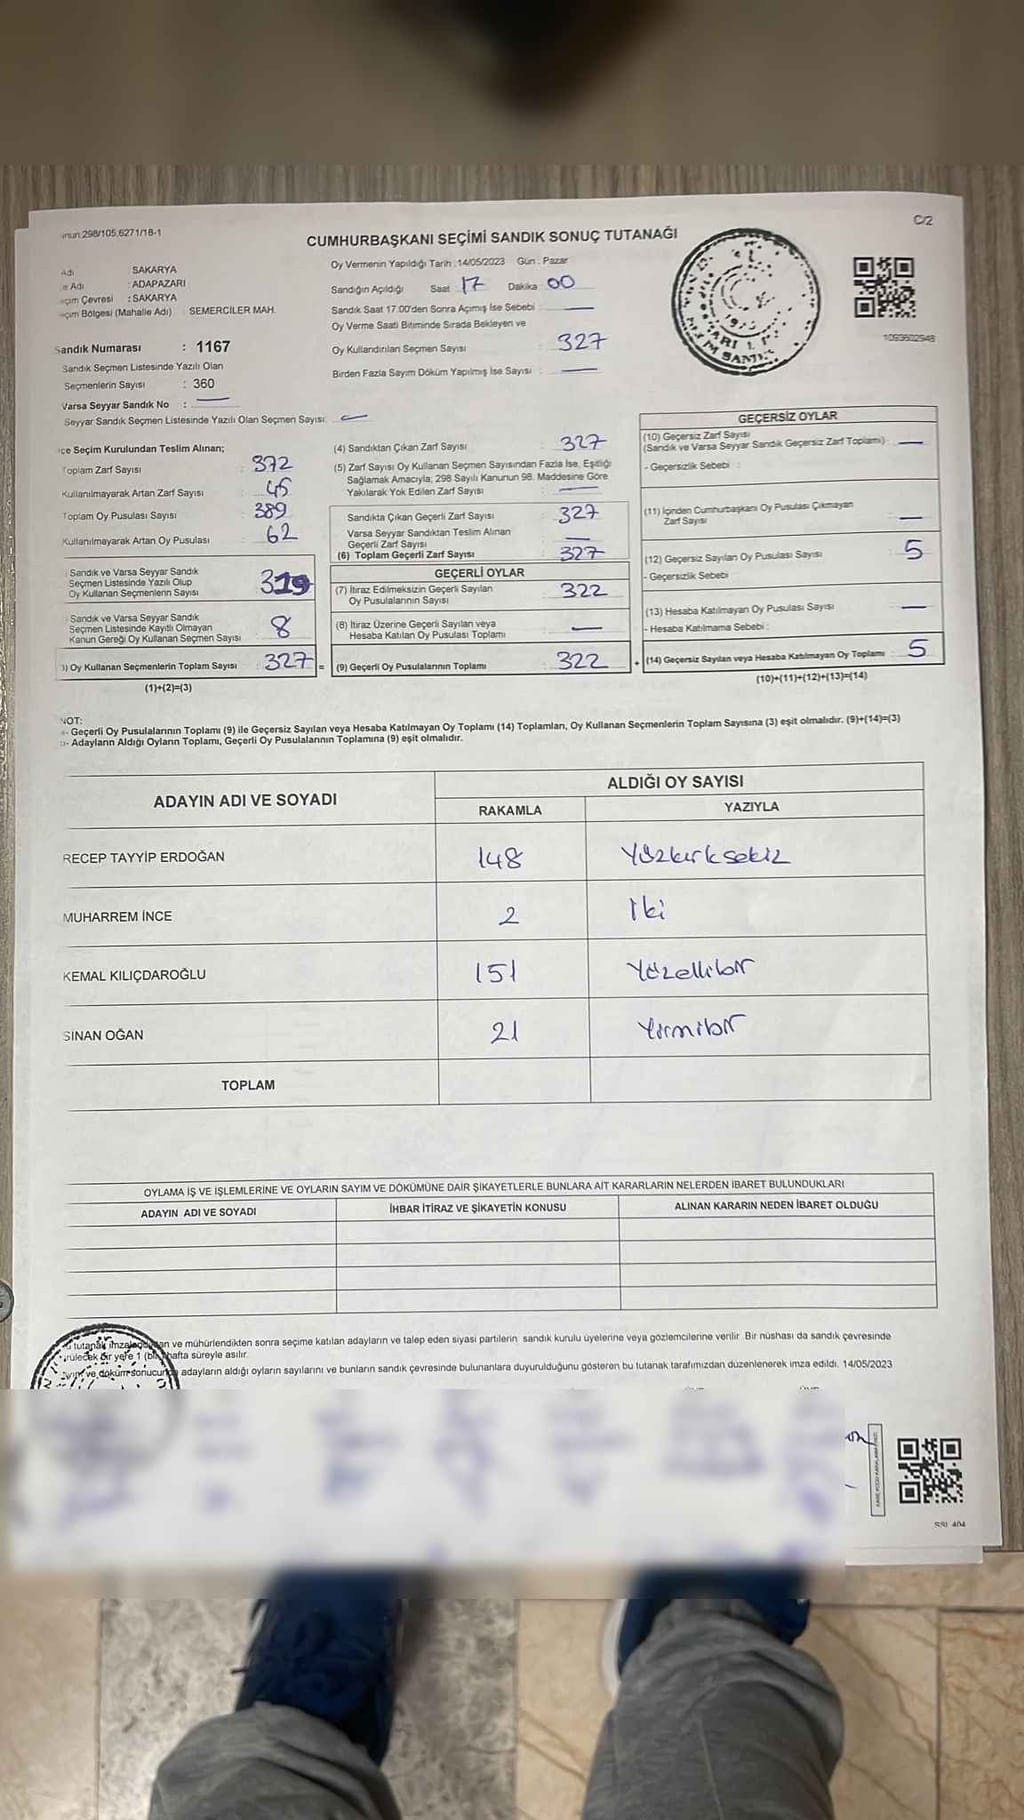 298/105,6271/18-1
C/2
CUMHURBAŞKANI SEÇİMİ SANDIK SONUÇ TUTANAĞI
Adı SAKARYA
Adı : ADAPAZARI
Çevresi : SAKARYA
Bölgesi (Mahalle Adı) : SEMERCİLER MAH.
Sandık Numarası : 1167
Sandık Seçmen Listesinde Yazılı Olan
Seçmenlerin Sayısı : 360
Varsa Seyyar Sandık No : —
Seyyar Sandık Seçmen Listesinde Yazılı Olan Seçmen Sayısı: —
Oy Vermenin Yapıldığı Tarih :14/05/2023 Gün : Pazar
Sandığın Açıldığı Saat 17 Dakika 00
Sandık Saat 17.00'den Sonra Açımış İse Sebebi : —
Oy Verme Saati Bitiminde Sırada Bekleyen ve
Oy Kullandırılan Seçmen Sayısı : 327
Birden Fazla Sayım Döküm Yapılmış İse Sayısı : —
1093602948
Seçim Kurulundan Teslim Alınan;
Toplam Zarf Sayısı : 372
Kullanılmayarak Artan Zarf Sayısı : 45
Toplam Oy Pusulası Sayısı : 389
Kullanılmayarak Artan Oy Pusulası : 62
Sandık ve Varsa Seyyar Sandık
Seçmen Listesinde Yazılı Olup
Oy Kullanan Seçmenlerin Sayısı : 319
Sandık ve Varsa Seyyar Sandık
Seçmen Listesinde Kayıtlı Olmayan
Kanun Gereği Oy Kullanan Seçmen Sayısı : 8
) Oy Kullanan Seçmenlerin Toplam Sayısı : 327 =
(1)+(2)=(3)
(4) Sandıktan Çıkan Zarf Sayısı : 327
(5) Zarf Sayısı Oy Kullanan Seçmen Sayısından Fazla İse, Eşitliği
Sağlamak Amacıyla; 298 Sayılı Kanunun 98. Maddesine Göre
Yakılarak Yok Edilen Zarf Sayısı : —
Sandıkta Çıkan Geçerli Zarf Sayısı : 327
Varsa Seyyar Sandıktan Teslim Alınan
Geçerli Zarf Sayısı : —
(6) Toplam Geçerli Zarf Sayısı : 327
GEÇERLİ OYLAR
(7) İtiraz Edilmeksizin Geçerli Sayılan
Oy Pusulalarının Sayısı : 322
(8) İtiraz Üzerine Geçerli Sayılan veya
Hesaba Katılan Oy Pusulası Toplamı : —
(9) Geçerli Oy Pusulalarının Toplamı : 322 +
GEÇERSİZ OYLAR
(10) Geçersiz Zarf Sayısı
(Sandık ve Varsa Seyyar Sandık Geçersiz Zarf Toplamı) : —
- Geçersizlik Sebebi :
(11) İçinden Cumhurbaşkanı Oy Pusulası Çıkmayan
Zarf Sayısı : —
(12) Geçersiz Sayılan Oy Pusulası Sayısı : 5
- Geçersizlik Sebebi
(13) Hesaba Katılmayan Oy Pusulası Sayısı : —
- Hesaba Katılmama Sebebi :
(14) Geçersiz Sayılan veya Hesaba Katılmayan Oy Toplamı : 5
(10)+(11)+(12)+(13)=(14)
NOT:
- Geçerli Oy Pusulalarının Toplamı (9) ile Geçersiz Sayılan veya Hesaba Katılmayan Oy Toplamı (14) Toplamları, Oy Kullanan Seçmenlerin Toplam Sayısına (3) eşit olmalıdır. (9)+(14)=(3)
- Adayların Aldığı Oyların Toplamı, Geçerli Oy Pusulalarının Toplamına (9) eşit olmalıdır.
ADAYIN ADI VE SOYADI ALDIĞI OY SAYISI
RAKAMLA YAZIYLA
RECEP TAYYİP ERDOĞAN 148 Yüzkırksekiz
MUHARREM İNCE 2 İki
KEMAL KILIÇDAROĞLU 151 Yüzellibir
SİNAN OĞAN 21 Yirmibir
TOPLAM
OYLAMA İŞ VE İŞLEMLERİNE VE OYLARIN SAYIM VE DÖKÜMÜNE DAİR ŞİKAYETLERLE BUNLARA AİT KARARLARIN NELERDEN İBARET BULUNDUKLARI
ADAYIN ADI VE SOYADI İHBAR İTİRAZ VE ŞİKAYETİN KONUSU ALINAN KARARIN NEDEN İBARET OLDUĞU
tutanak imzalandıktan ve mühürlendikten sonra seçime katılan adayların ve talep eden siyasi partilerin sandık kurulu üyelerine veya gözlemcilerine verilir. Bir nüshası da sandık çevresinde
bir yere 1 (bir) hafta süreyle asılır.
ve döküm sonucunda adayların aldığı oyların sayılarını ve bunların sandık çevresinde bulunanlara duyurulduğunu gösteren bu tutanak tarafımızdan düzenlenerek imza edildi. 14/05/2023